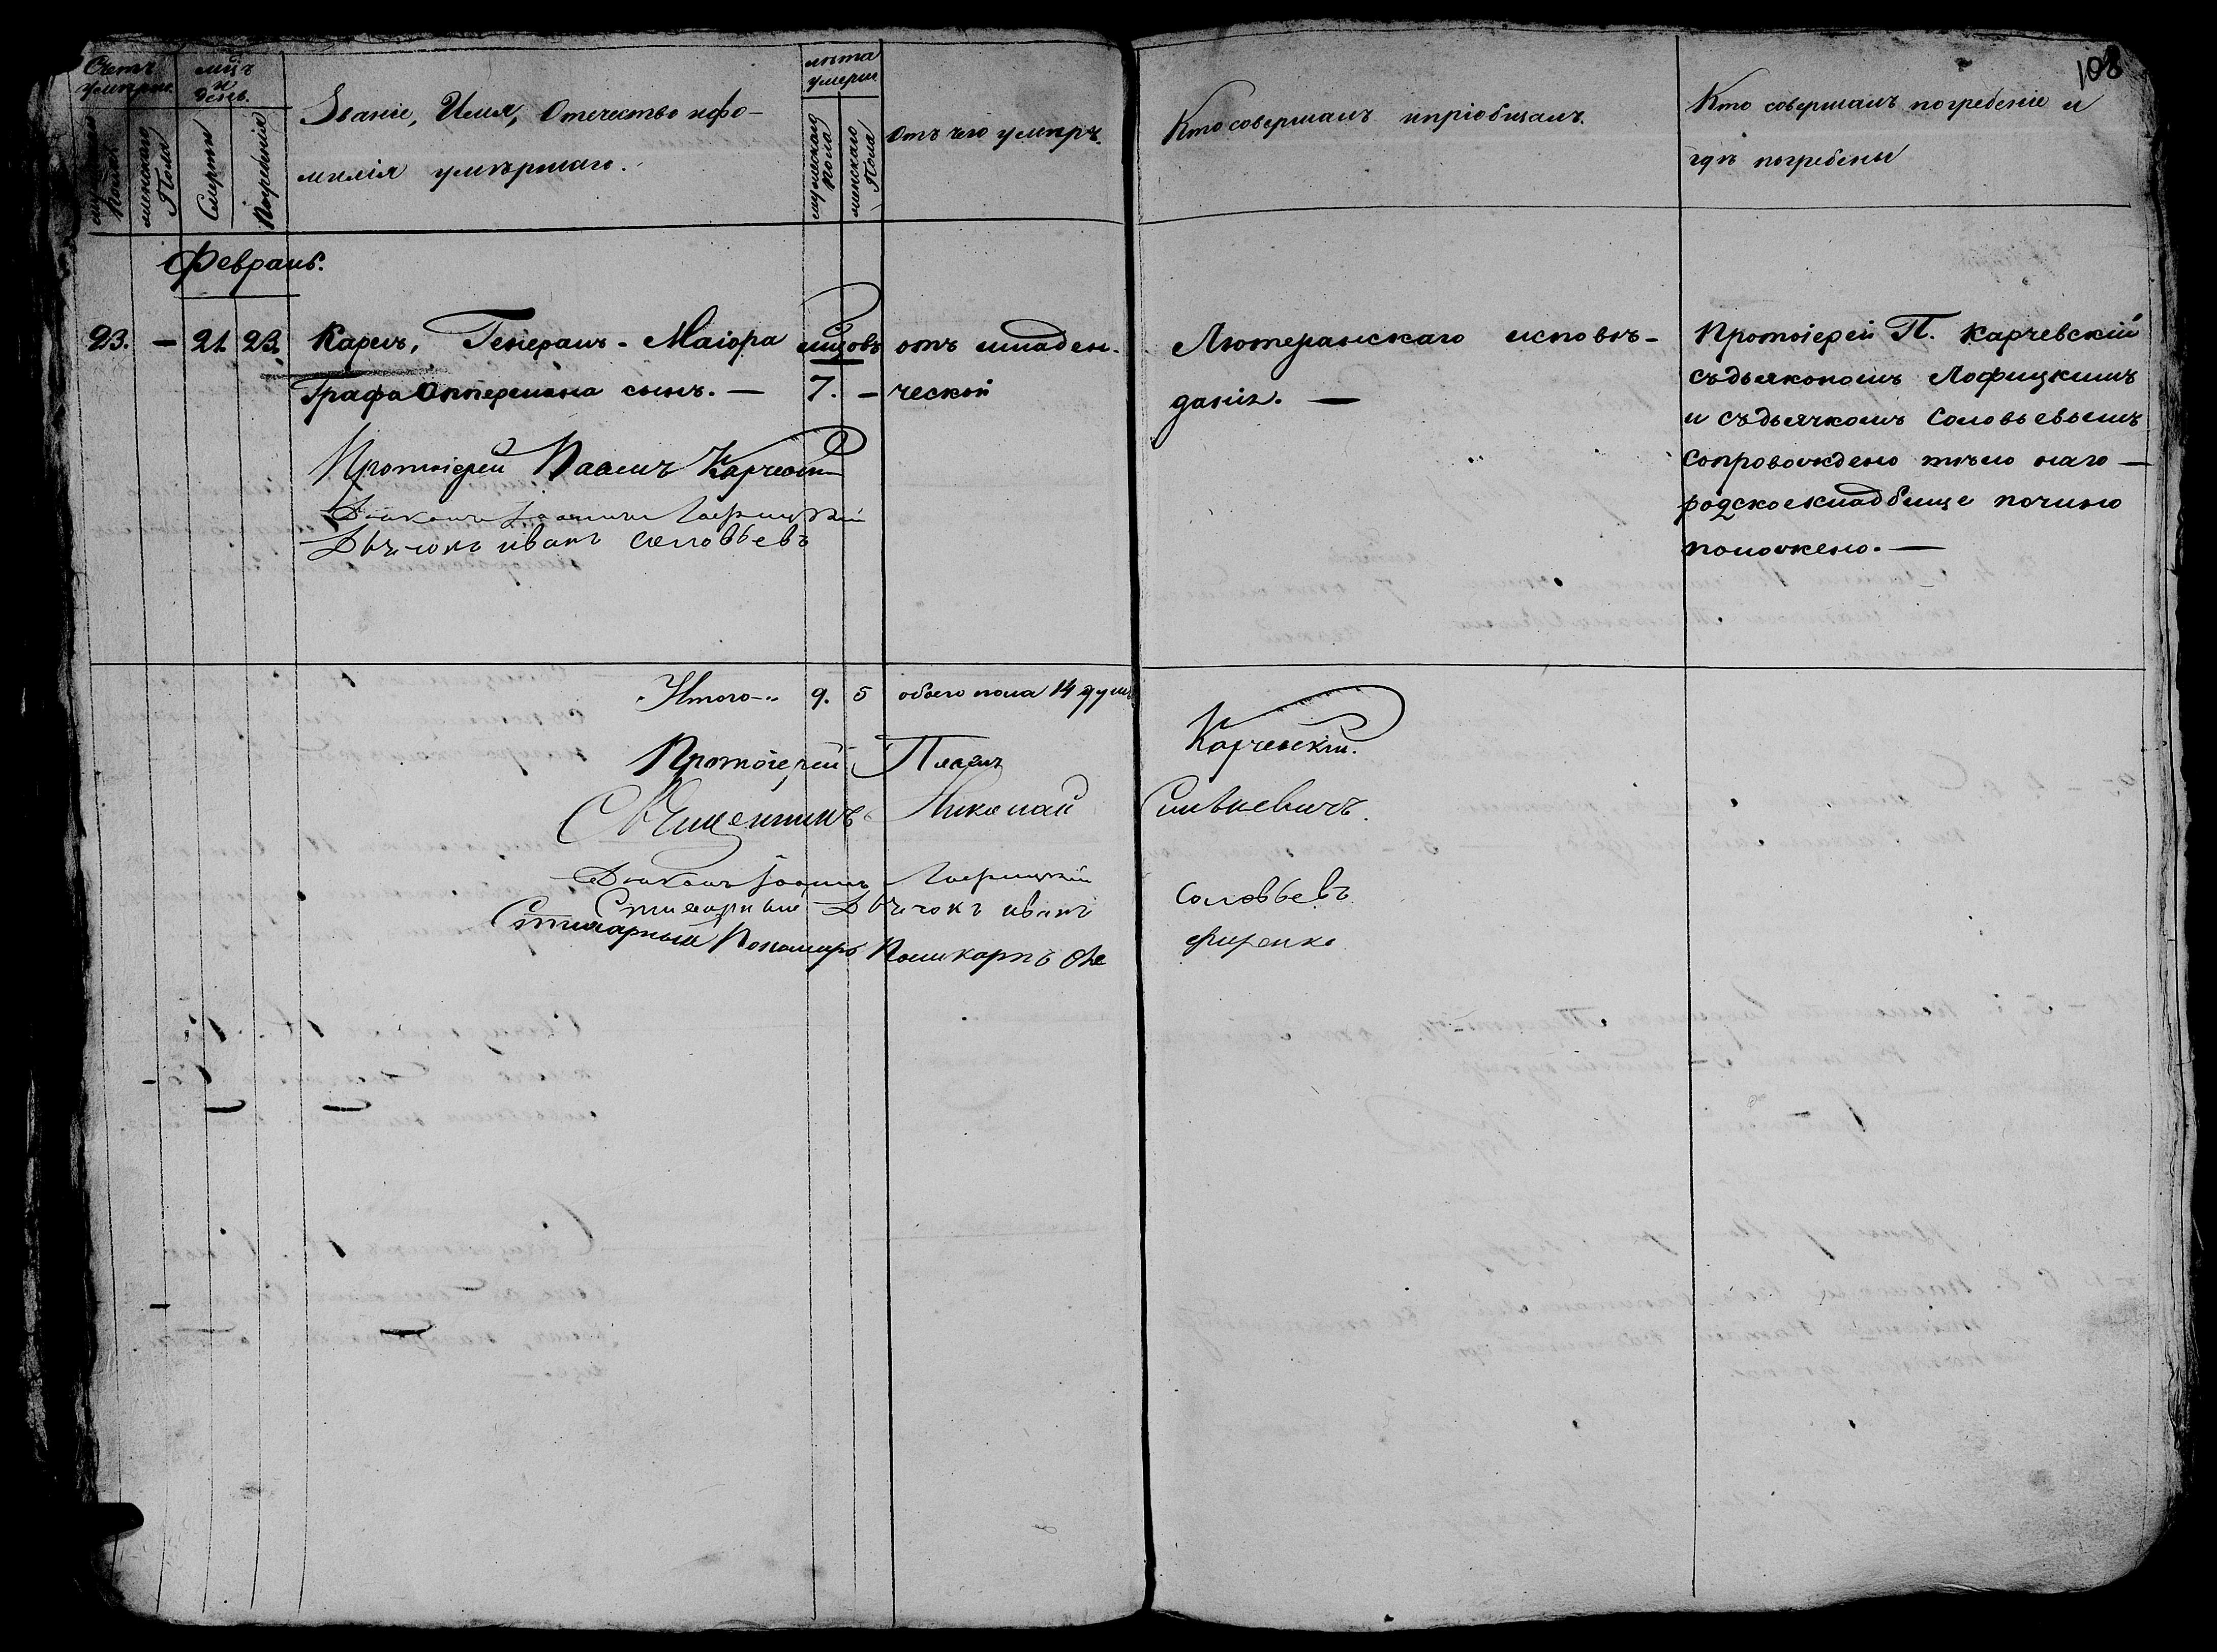 108
Счетъ умершихъ
мужескаго пола
женскаго Пола
мцъ и день
Смерти
Погребенія
Званіе, Имя, Отечество и фа-
милія умершаго.
лѣта умерш
мужескаго пола
женскаго Пола
Отъ чего умеръ.
Кто совершалъ ипріобщалъ.
Кто совершалъ погребеніе и
гдѣ погребены
Февраль.
23. — 21. 23. Карлъ, Генералъ-Маіора мцовъ отъ младен-
Графа Оппермана сынъ. — 7. — ческой
Лютеранскаго исповѣ-
данія. —
Протоіерей П. Карчевскій
съдьякономъ Лофицкимъ
и съдьячкомъ Соловьевымъ
сопровождено тѣло наго-
родское кладбище почину
положено. —
Протоіерей Павелъ Карчевскій
Дьяконъ Іоаннъ Лофицкій
Дьячокъ иванъ соловьевъ
Итого 9. 5 обоего пола 14 душъ
Протоіерей Павелъ Карчевскій.
Священникъ Николай
Дьяконъ Іоаннъ Лофицкій
Стихарный Дьячокъ иванъ Соловьевъ
Стихарный Пономарь Поликарпъ